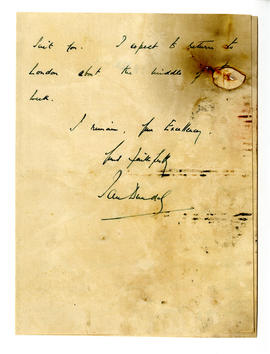 suit you. I expect to return to
London about the middle of
week.
I remain, your Excellency,
Yours faithfully